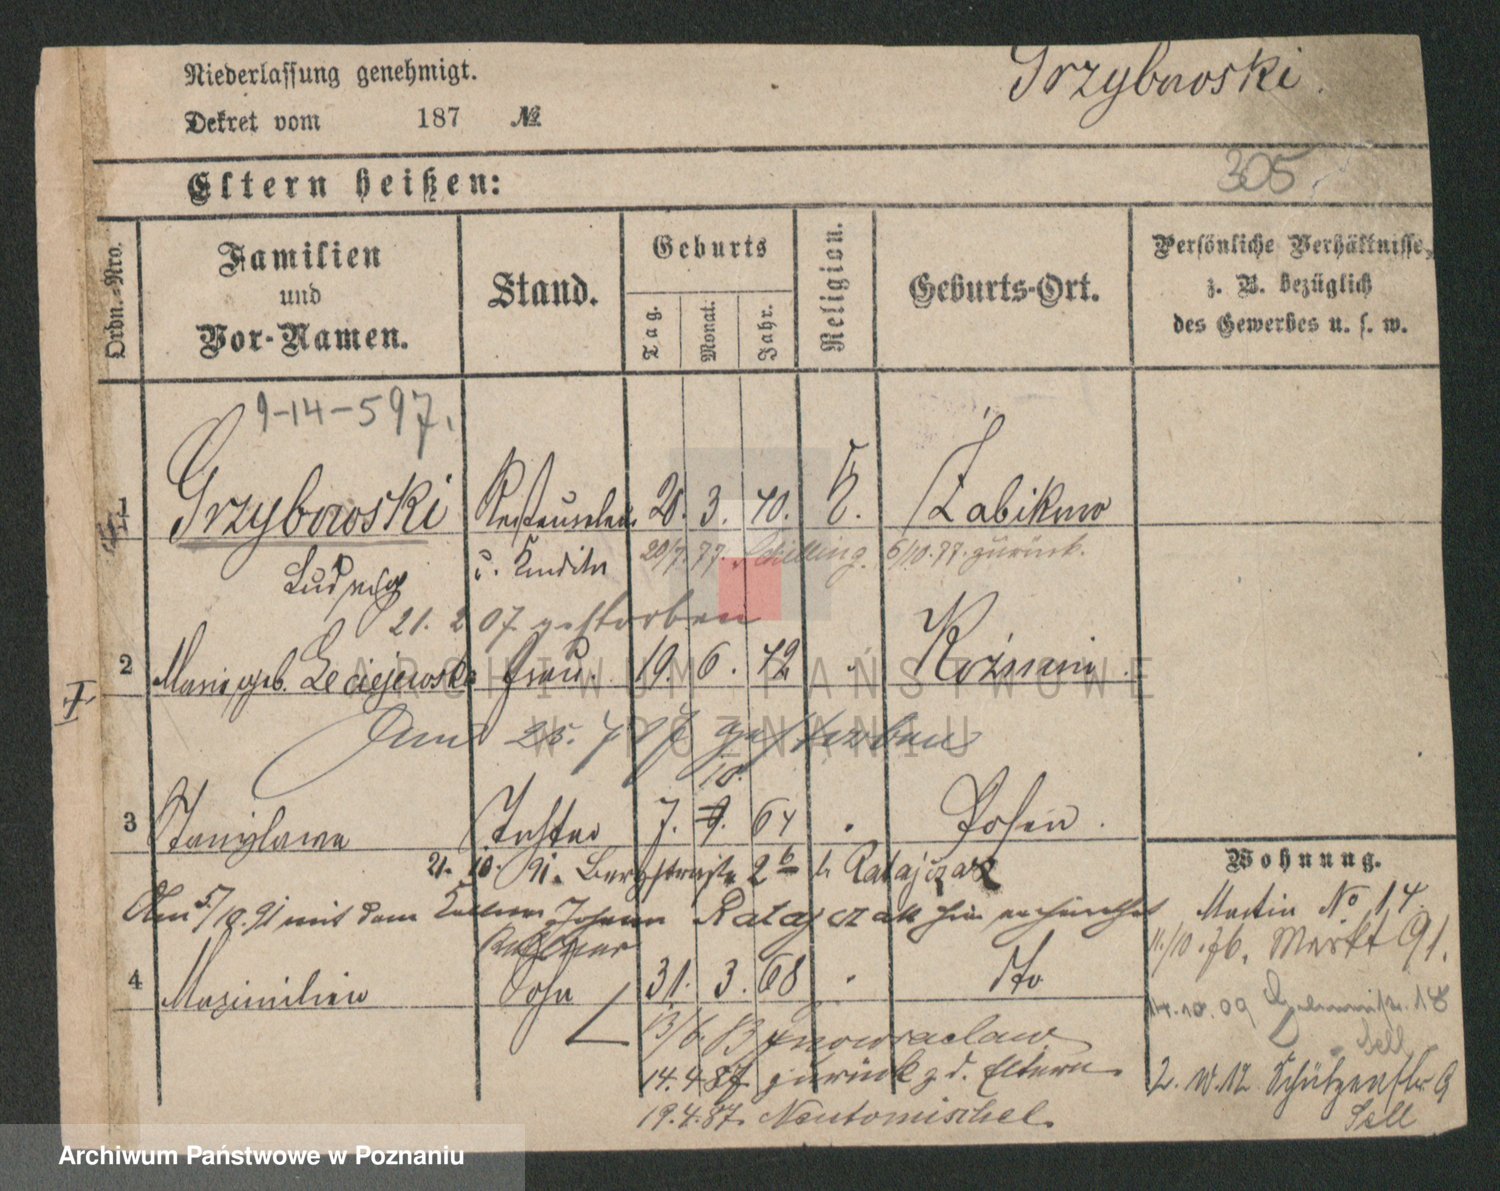 Niederlassung genehmigt.
Dekret vom 187 №
Grzybowski.
305
Eltern heißen:
Ordn.-Nro.
Familien
und
Vor-Namen.
Stand.
Geburts
Tag.
Monat.
Jahr.
Religion.
Geburts-Ort.
Persönliche Verhältnisse,
z. B. bezüglich
des Gewerbes u. s. w.
9-14-597.
1 Grzybowski 20. 3. 40. Żabikowo
20/7. 77. Schilling. 6/10. 77. zurück.
Ludwig u.
21. 2 07 gestorben
2 Marie geb. Leciejewska Frau. 19. 6. 42
25. gestorben
10.
3 Stanislawa Tochter 7. 9. 64 Posen.
21. 10. 91. Bergstraße 2b b. Ratajczak
Am 5/10. 91 mit dem Kellner Johann Ratajczak
Kellner
4 Maximilian Sohn 31. 3. 68 dto
Inowraclaw
14. 4. 87 zurück z. d. Eltern.
19. 4. 87. Neutomischel.
Wohnung.
Martin No 14.
11/10. 76. Markt 91.
14. 10. 09 18
Sell
2. 10. 12 Schützenstr 9
Sell
ARCHIWUM PAŃSTWOWE
W POZNANIU
Archiwum Państwowe w Poznaniu